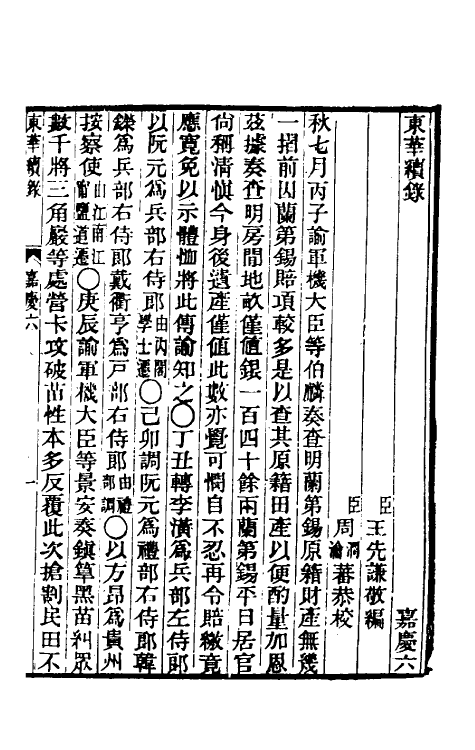 東華續錄
嘉慶六
臣王先謙敬編
臣周瀹蕃恭校
潤
秋七月丙子諭軍機大臣等伯麟奏查明蘭第錫原籍財產無幾
一摺前因蘭第錫賠項較多是以查其原籍田產以便酌量加恩
茲據奏查明房間地畝僅值銀一百四十餘兩蘭第錫平日居官
尙稱清愼今身後遺產僅值此數亦覺可憫自不忍再令賠繳竟
應寬免以示體恤將此傳諭知之〇丁丑轉李潢爲兵部左侍郞
以阮元爲兵部右侍郞由內閣學士遷〇己卯調阮元爲禮部右侍郞韓
鑅爲兵部右侍郞戴衢亨爲戶部右侍郞由禮部調〇以方昂爲貴州
按察使由江南江甯鹽道遷〇庚辰諭軍機大臣等景安奏鎭筸黑苗糾眾
數千將三角巖等處營卡攻破苗性本多反覆此次搶割民田不
東華續錄
嘉慶六
一